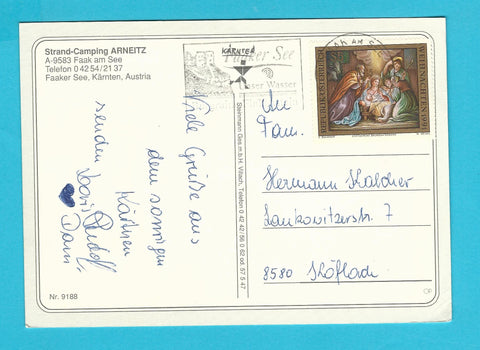 Strand-Camping ARNEITZ
A-9583 Faak am See
Telefon 0 42 54/21 37
Faaker See, Kärnten, Austria
KÄRNTEN
Faaker See
REPUBLIK ÖSTERREICH
Viele Grüße aus
dem sonnigen
Kärnten
senden Doris Rudolf
Dani
Steinmann Ges.m.b.H. Villach, Telefon 0 42 42/56 0 62 od. 57 5 47
An
Fam.
Hermann Kaldher
Lankowitzerstr. 7
8580 Köflach
Nr. 9188